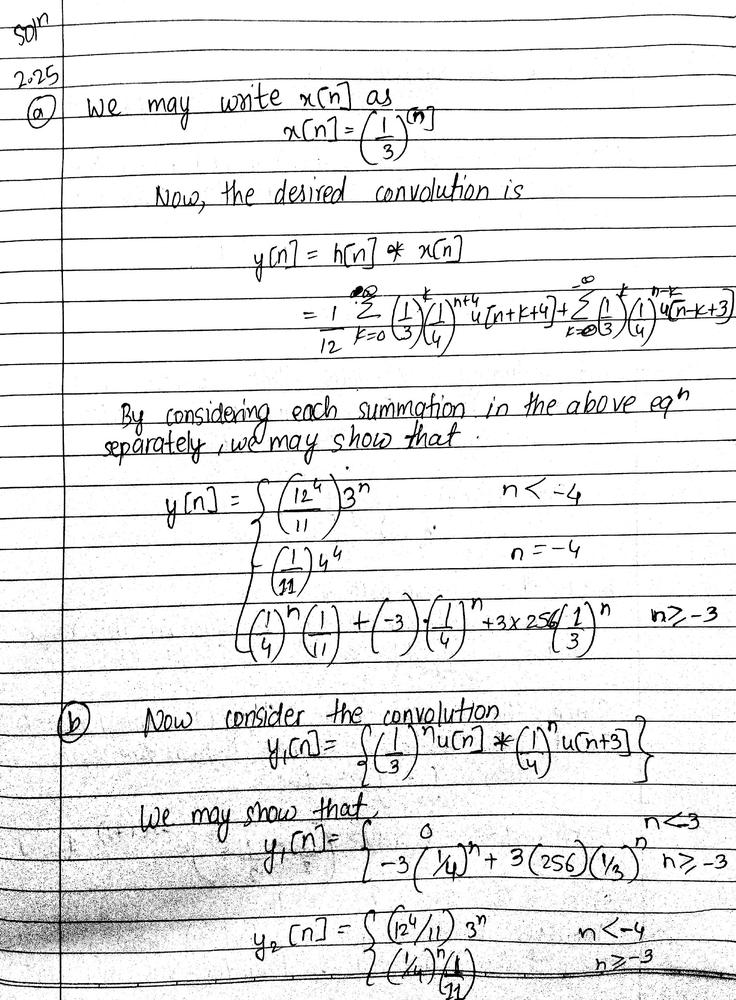 Soln
2.25
(a) We may write x[n] as
x[n] = (1/3)^[n]
Now, the desired convolution is
y[n] = h[n] * x[n]
= 1/12 ∞Σk=0 (1/3)^k (1/4)^n+4 u[n+k+4] + -∞Σk=0 (1/3)^k (1/4)^n-k u[n-k+3]
By considering each summation in the above eqn
separately, we may show that.
y[n] = { (12^4/11) 3^n n < -4
(1/11) 4^4 n = -4
(1/4)^n (1/11) + (-3)·(1/4)^n + 3 x 256 (1/3)^n n ≥ -3
(b) Now consider the convolution
y1[n] = { (1/3)^n u[n] * (1/4)^n u[n+3] }
We may show that,
y1[n] = { 0 n < 3
-3 (1/4)^n + 3 (256) (1/3)^n n ≥ -3
y2[n] = { (12^4/11) 3^n n < -4
(1/4)^n (1/11) n ≥ -3